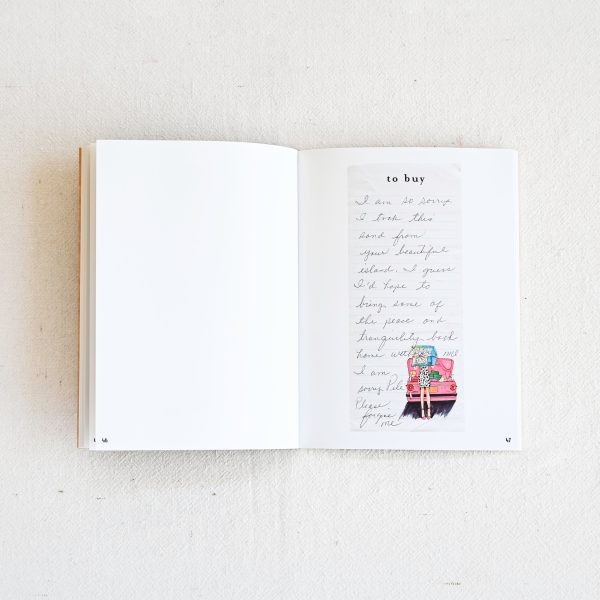 to buy
I am so sorry
I took this
sand from
your beautiful
island. I guess
I'd hope to
bring some of
the peace and
tranquility back
home with me.
I am
sorry Pele
Please
forgive
me
46
47